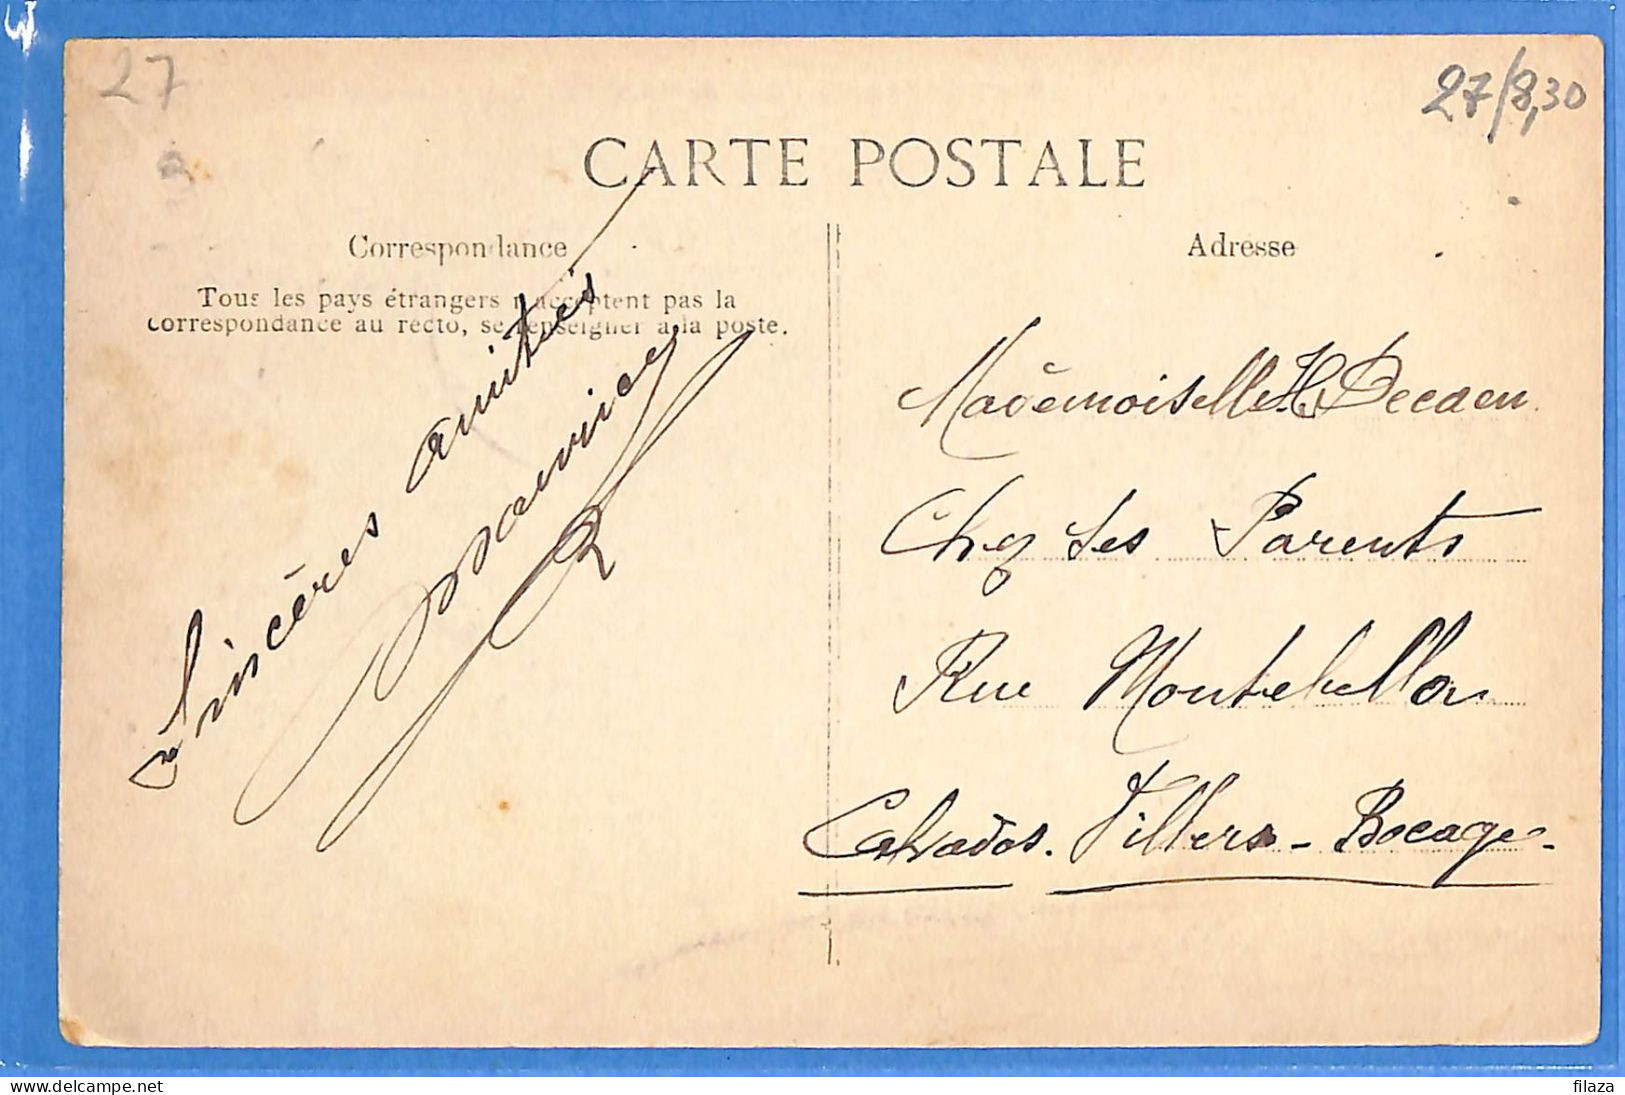 27
27/8,30
CARTE POSTALE
Correspondance
Tous les pays étrangers n'acceptent pas la
correspondance au recto, se renseigner à la poste.
Sincères amitiés
Maurice
Adresse
Mademoiselle H. Decaen
Chez ses Parents
Rue Montebello
Calvados. Villers-Bocage
filaza